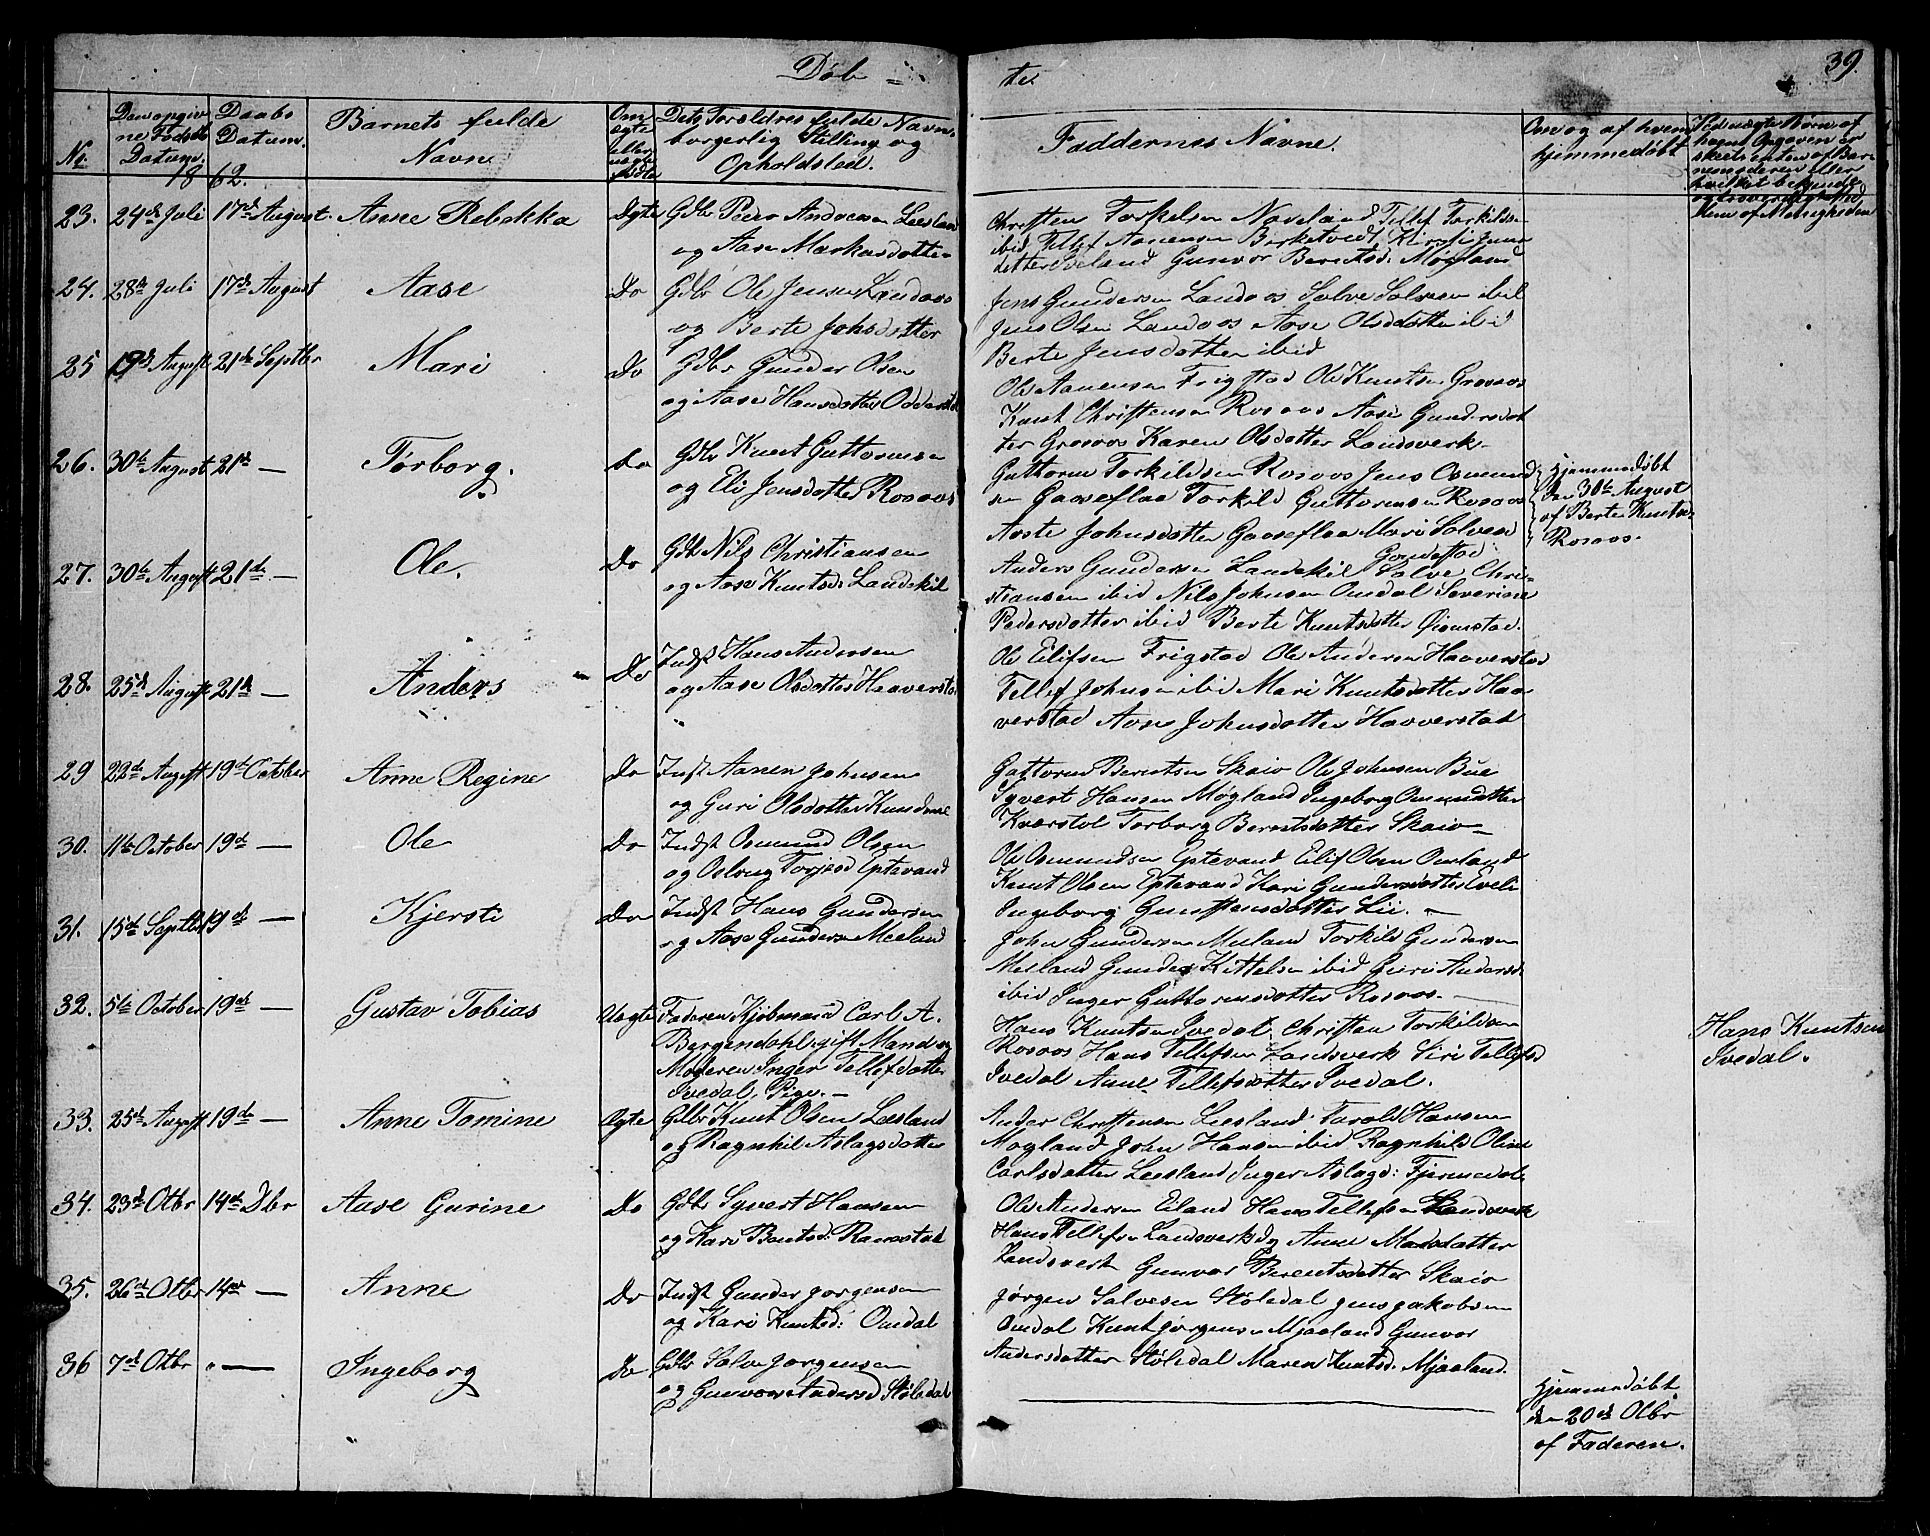 Døb=
te
39.
No.
Den opgiv
ne Fødsels
Datum.
Daabs
Datum.
Barnets fulde
Navn
Om
ægte
eller
uægte
fødte
Dets Forældres fulde Navn
borgerlig Stilling og
Opholdsted.
Faddernes Navne.
Om og af hvem
hjemmedøbt
18 62.
23. 24de Juli 17de August. Anne Rebekka Ægte Gdbr Peder Andersen Leesland
og Aase Markusdotter
Christen Torkelsen Naveland, Tellef Torkildsen
ibid, Tellef Aanensen Birketvedt, Kirsti Jens
detter Beland Gunvor Berntsd: Møgland
24. 28de Juli 17de August Aase Do Gdbr Ole Jensen Landaas
og Berte Johsdotter
Jens Gundersen Landaas Salve Salvesen ibid
Jens Olsen Landaas Aase Olsdotter ibid
Berte Jensdotter ibid
25 19de August 21de Septbr Mari Do Gdbr Gunder Olsen
og Aase Hansdotter
Ole Aanensen Frigstad Ole Knutsen Grosaas
Knut Christensen Rosaas Aase Gundersdot
ter Grosaas Karen Olsdotter Landsverk
26. 30te August 21de — Torborg. Do Gdbr Knut Guttormsen
og Eli Jensdotter Rosaas
Guttorm Torkildsen Rosaas Jens Osmund
sen Gaaseflaa Torkild Guttormsen Rosaas
Aaste Johnsdotter Gaaseflaa Mari Salvesd
Hjemmedøbt
den 30te August
af Berte Knutsd
Rosaas.
27. 30te August 21de — Ole. Do Gdbr Nils Christiansen
og Aase Knutsd: Landekil
Anders Gundersen Landekil Salve Chri-
stiansen ibid Nils Johnsen Omdal Severine
Pedersdotter ibid Berte Knutsdotter
28. 25de August 21de — Anders Do Indst Hans Andersen
og Aase Olsdotter Haaverstad
Ole Eilifsen Frigstad Ole Andersen Haaverstad
Tellef Johnsen ibid Mari Knutsdotter Haa
verstad Aase Johnsdotter Haaverstad
29 22de August 19de October Anne Regine Do Indst Aanen Johnsen
og Guri Olsdotter
Guttorm Berentsen Skaiv Ole Johnsen Bue
Syvert Hansen Møgland Ingeborg Osmundsdatter
Torborg Berentsdotter Skaiv —
30. 11te October 19de — Ole Do Indst Osmund Olsen
og Torjesd Eptevand
Ole Osmundsen Eptevand Eilif Olsen
Knut Olsen Eptevand Kari Gundersdotter
Ingeborg Lii. —
31. 15de Septbr 19de — Kjersti Do Indst Hans Gundersen
og Aase Gundersen Mesland
John Gundersen Mesland Torkild Gundersen
Mesland Gunder Kittelsen ibid Guri Andersd
ibid Inger Guttormsdotter Rosaas. —
32. 5te October 19de — Gustav Tobias Uægte Faderen Kjøbmand Carl A.
Bergendahl, gift Mand og
Moderen Inger Tellefdotter
Ivedal, Pige. —
Hans Knutsen Ivedal, Christen Torkildsen
Rosaas Hans Tellefsen Landsverk Siri Tellefsd
Ivedal Anne Tellefsdotter Ivedal.
Hans Knutsen
Ivedal.
33. 25de August 19de — Anne Tomine Ægte Gdbr Knut Olsen Leesland
og Ragnhil Aslagsdotter
Anders Christensen Leesland. Harald Hansen
Møgland John Hansen ibid Ragnhild Oline
Carlsdotter Leesland Inger Aslagd: Fjermedal
34. 23de Otbr 14de Dbr Aase Gurine Do Gdbr Syvert Hansen
og Kari Berntsd:
Ole Andersen Eiland Hans Tellefsen Landsverk
Hans Tellefsen Landsverk og Anne Madsdotter
Landsverk Gunvor Berentsdotter Skaiv
35. 26de Otbr 14de — Anne Do Indst Gunder Jorgensen
og Kari Knutsd: Omdal
Jørgen Salvesen Støledal Jens Jakobsen
Omdal Knut Jørgensen Mjaaland Gunvor
Andersdotter Støledal Maren Knutsd. Mjaaland.
36 7de Otbr " — Ingeborg Do Gdbr Salve Jorgensen
og Gunvor Andersd Støledal
Hjemmedøbt
den 20de Otbr
af Faderen.